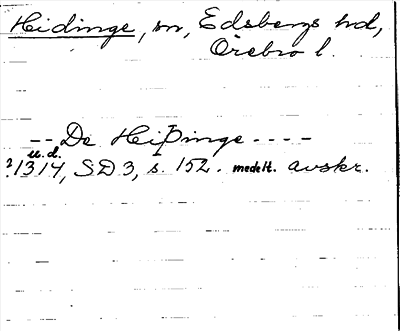 Heidinge, sn, Edsbergs hd,
Örebro l.
-- De Heiþinge ----
u.d.
?1314, SD 3, s. 152. medelt. avskr.